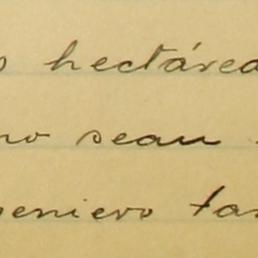 hectárea
no sean
geniero tan